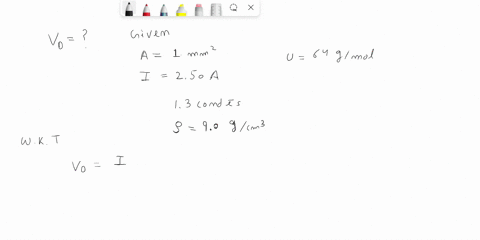 V_D = ?
Given
A = 1 mm²
I = 2.50 A
U = 64 g/mol
1.3 condts
ρ = 9.0 g/cm³
W.K.T
V_D = I